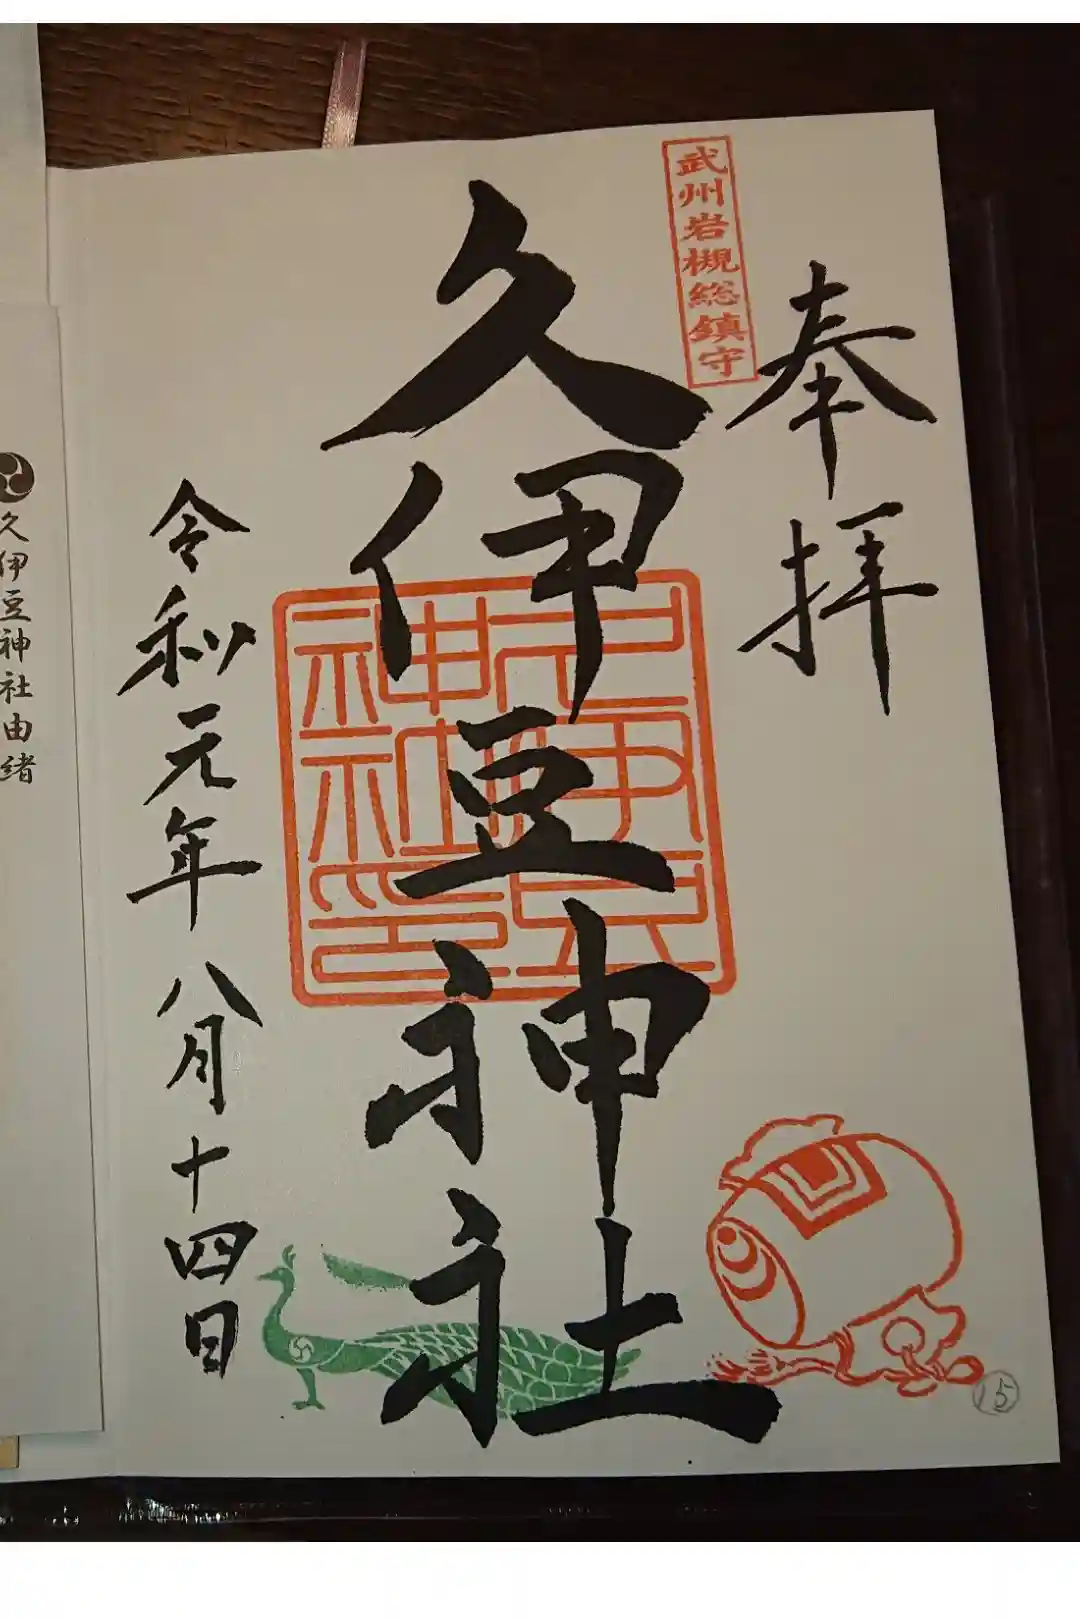 奉拝
武州岩槻総鎮守
久伊豆神社
久伊豆神社印
令和元年八月十四日
久伊豆神社由緒
15